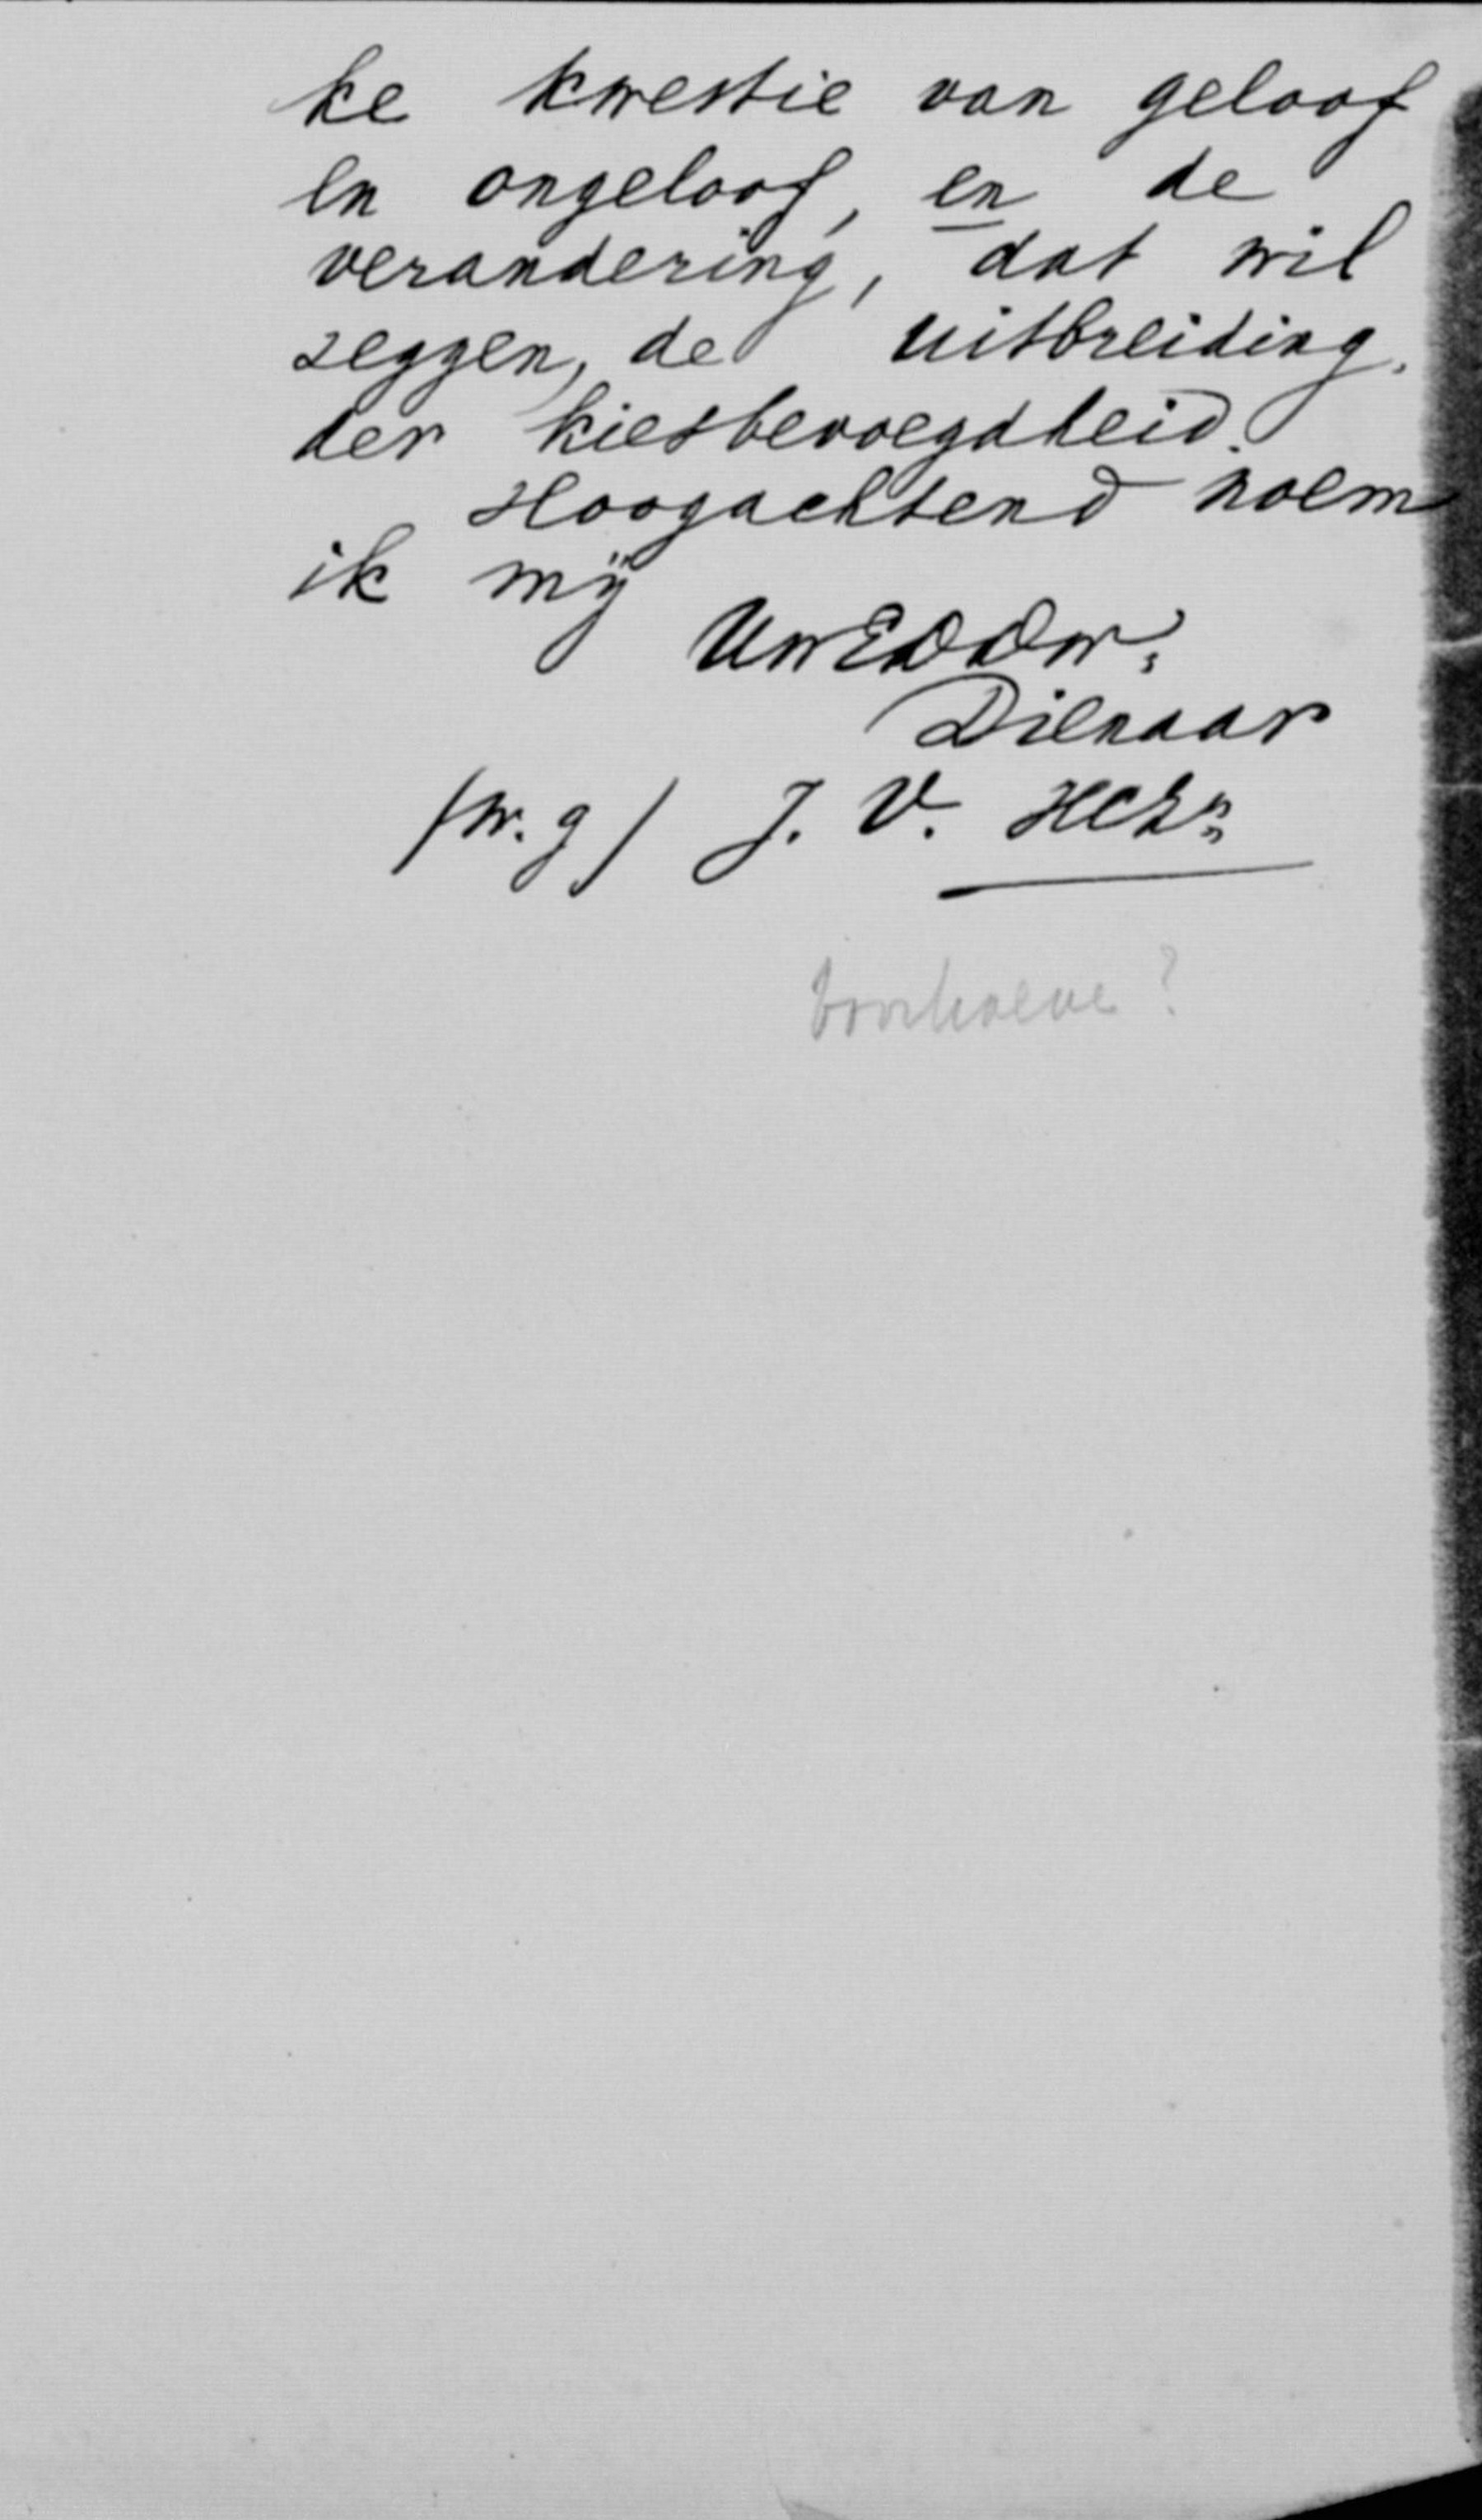 ke kwestie van geloof
en ongeloof, en de
verandering, dat wil
zeggen, de uitbreiding
der kiesbevoegdheid.
Hoogachtend noem
ik mij
UwEDDw:
Dienaar
(w.g) J. V.